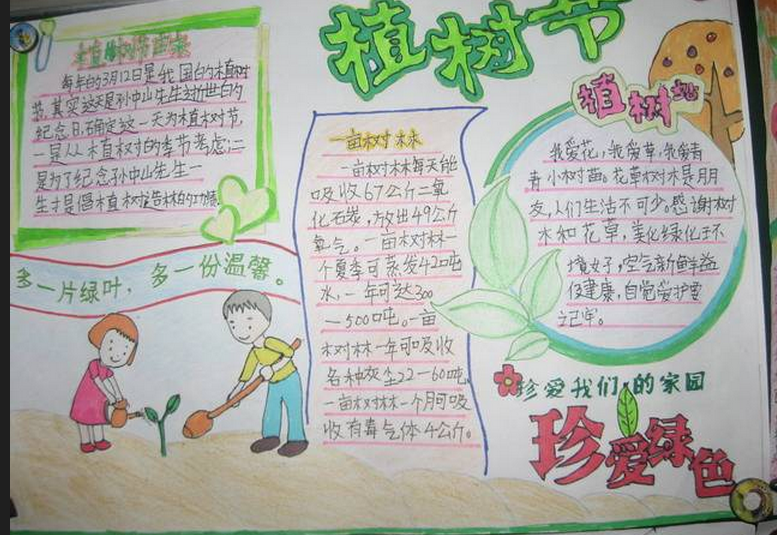 植树节
植树节由来
每年的3月12日是我国的植树
节,其实这天是孙中山先生逝世的
纪念日,确定这一天为植树节,
一是从植树的季节考虑;二
是为了纪念孙中山先生一
生才是倡植树造林的功绩
多一片绿叶,多一份温馨。
一亩树林
一亩树林每天能
吸收67公斤二氧
化石炭,放出49公斤
氧气。一亩树林一
个夏季可蒸发42吨
水,一年可达300
—500吨。一亩
树林一年可吸收
各种灰尘22—60吨,
一亩树林一个月可吸
收有毒气体4公斤。
植树
我爱花,我爱草,我爱青
青小树苗。花草树木是朋
友,人们生活不可少。感谢树
木和花草,美化绿化
境好,空气新鲜益
健康,自觉爱护要
记牢。
珍爱我们的家园
珍爱绿色